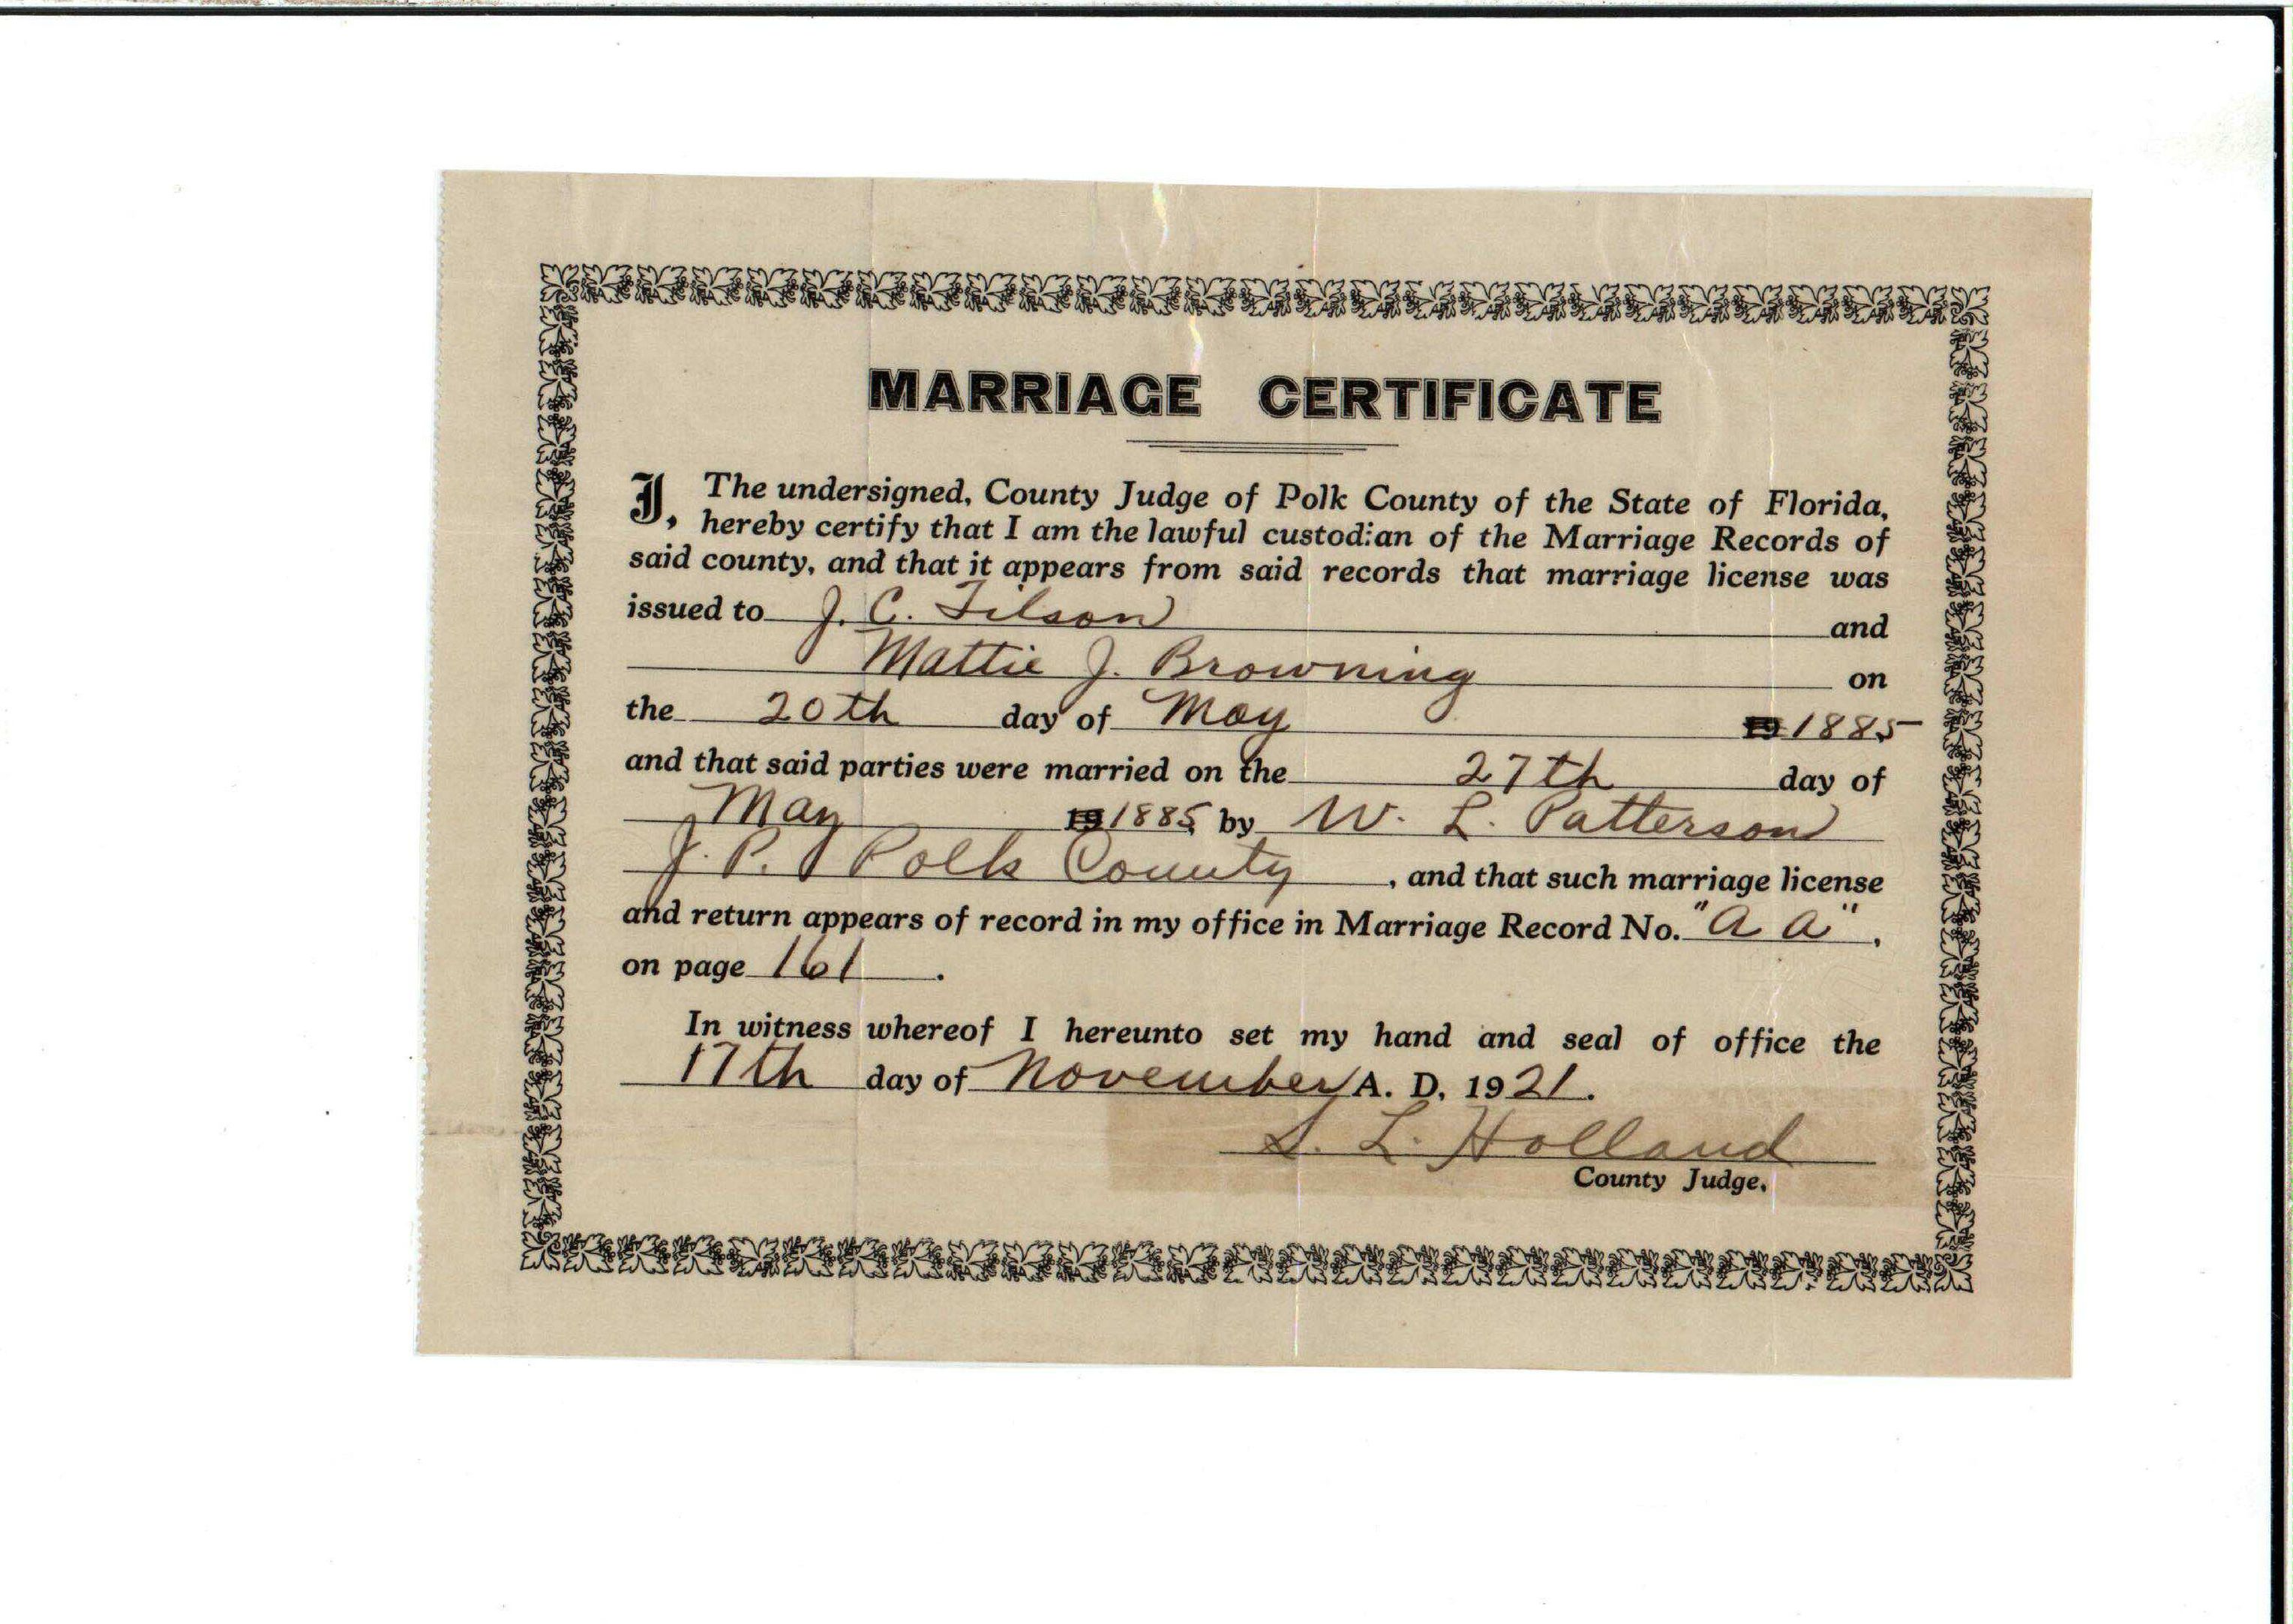 MARRIAGE CERTIFICATE
I, The undersigned, County Judge of Polk County of the State of Florida,
hereby certify that I am the lawful custodian of the Marriage Records of
said county, and that it appears from said records that marriage license was
issued to J. C. Tilson and
Mattie J. Browning on
the 20th day of May 19 1885
and that said parties were married on the 27th day of
May 19 1885 by W. L. Patterson
J. P. Polk County, and that such marriage license
and return appears of record in my office in Marriage Record No. "A A",
on page 161.
In witness whereof I hereunto set my hand and seal of office the
17th day of November A. D. 1921.
S. L. Holland
County Judge.